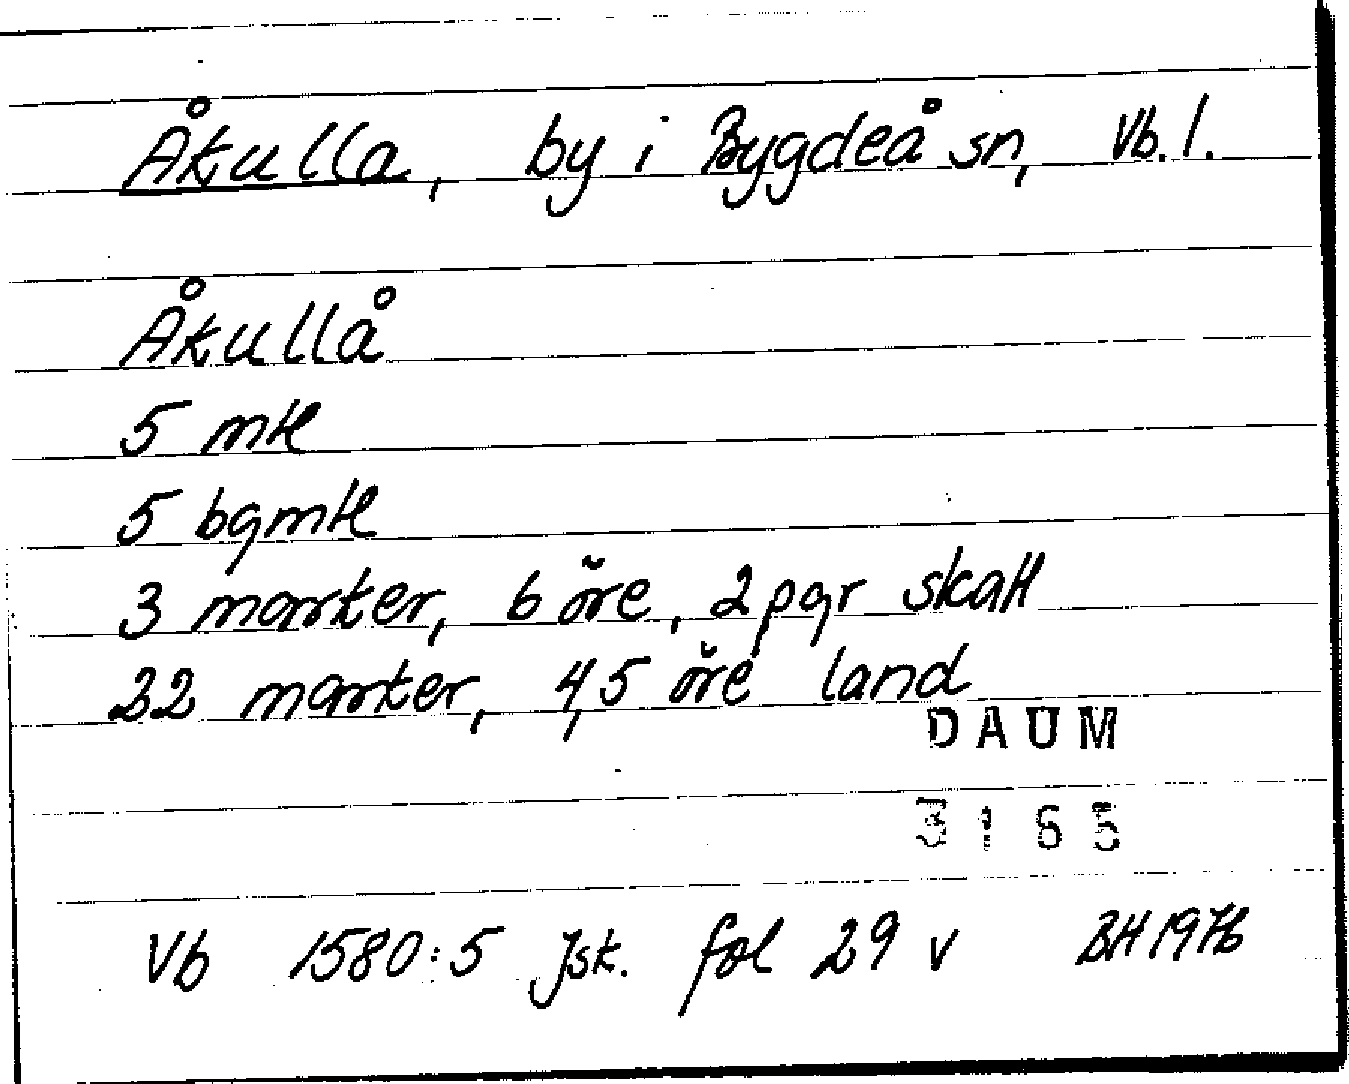 Åkulla, by i Bygdeå sn, Vb. l.
Åkullå
5 mtl
5 bgmtl
3 marker, 6 öre, 2 pgr skatt
32 marker, 4,5 öre land
DAUM
3165
Vb 1580:5 Jsk. fol 29 v BH 1976